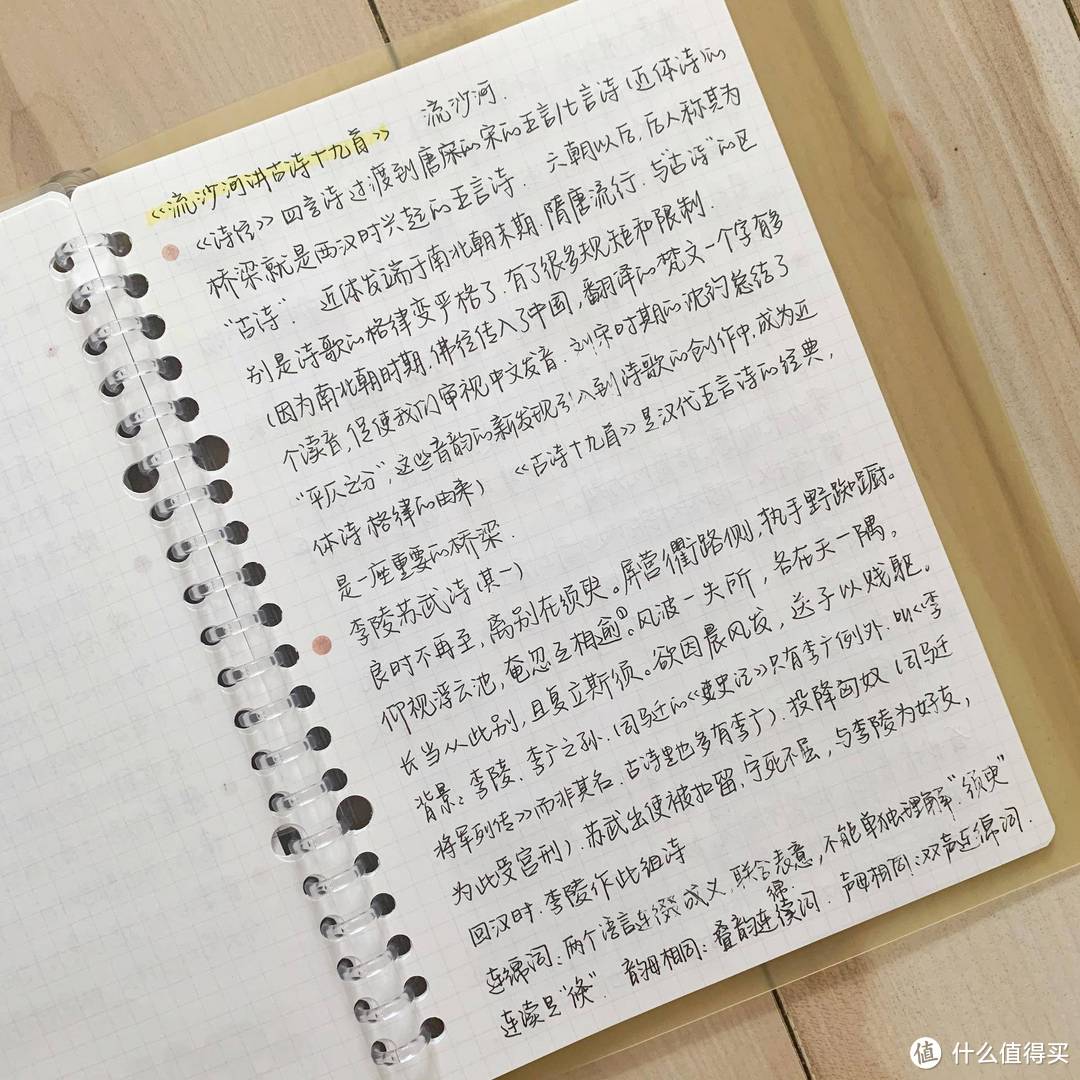 《流沙河讲古诗十九首》 流沙河.
《诗经》四言诗过渡到唐宋的五言/七言诗(近体诗)的
桥梁就是西汉时兴起的五言诗. 六朝以后,后人称其为
“古诗”. 近体发端于南北朝末期.隋唐流行.与“古诗”的区
别是诗歌的格律变严格了.有了很多规矩和限制.
(因为南北朝时期,佛经传入了中国,翻译的梵文一个字有多
个读音,促使我们审视中文发音.刘宋时期的沈约总结了
“平仄之分”,这些音韵的新发现引入到诗歌的创作中,成为近
体诗格律的由来) 《古诗十九首》是汉代五言诗的经典,
是一座重要的桥梁.
李陵苏武诗(其一)
良时不再至,离别在须臾。屏营衢路侧,执手野踟蹰。
仰视浮云池,奄忽互相逾①。风波一失所,各在天一隅,
长当从此别,且复立斯须。欲因晨风发,送子以贱躯。
背景:李陵.李广之孙.(司马迁的《史记》只有李广例外.叫《李
将军列传》而非其名.古诗里也多有李广).投降匈奴(司马迁
为此受宫刑).苏武出使被扣留,宁死不屈,与李陵为好友,
回汉时.李陵作此组诗
连绵词:两个语言连缀成义,联合表意,不能单独理解.“须臾”
连读是“倏”. 韵母相同:叠韵连绵词. 声母相同:双声连绵词.
值 什么值得买